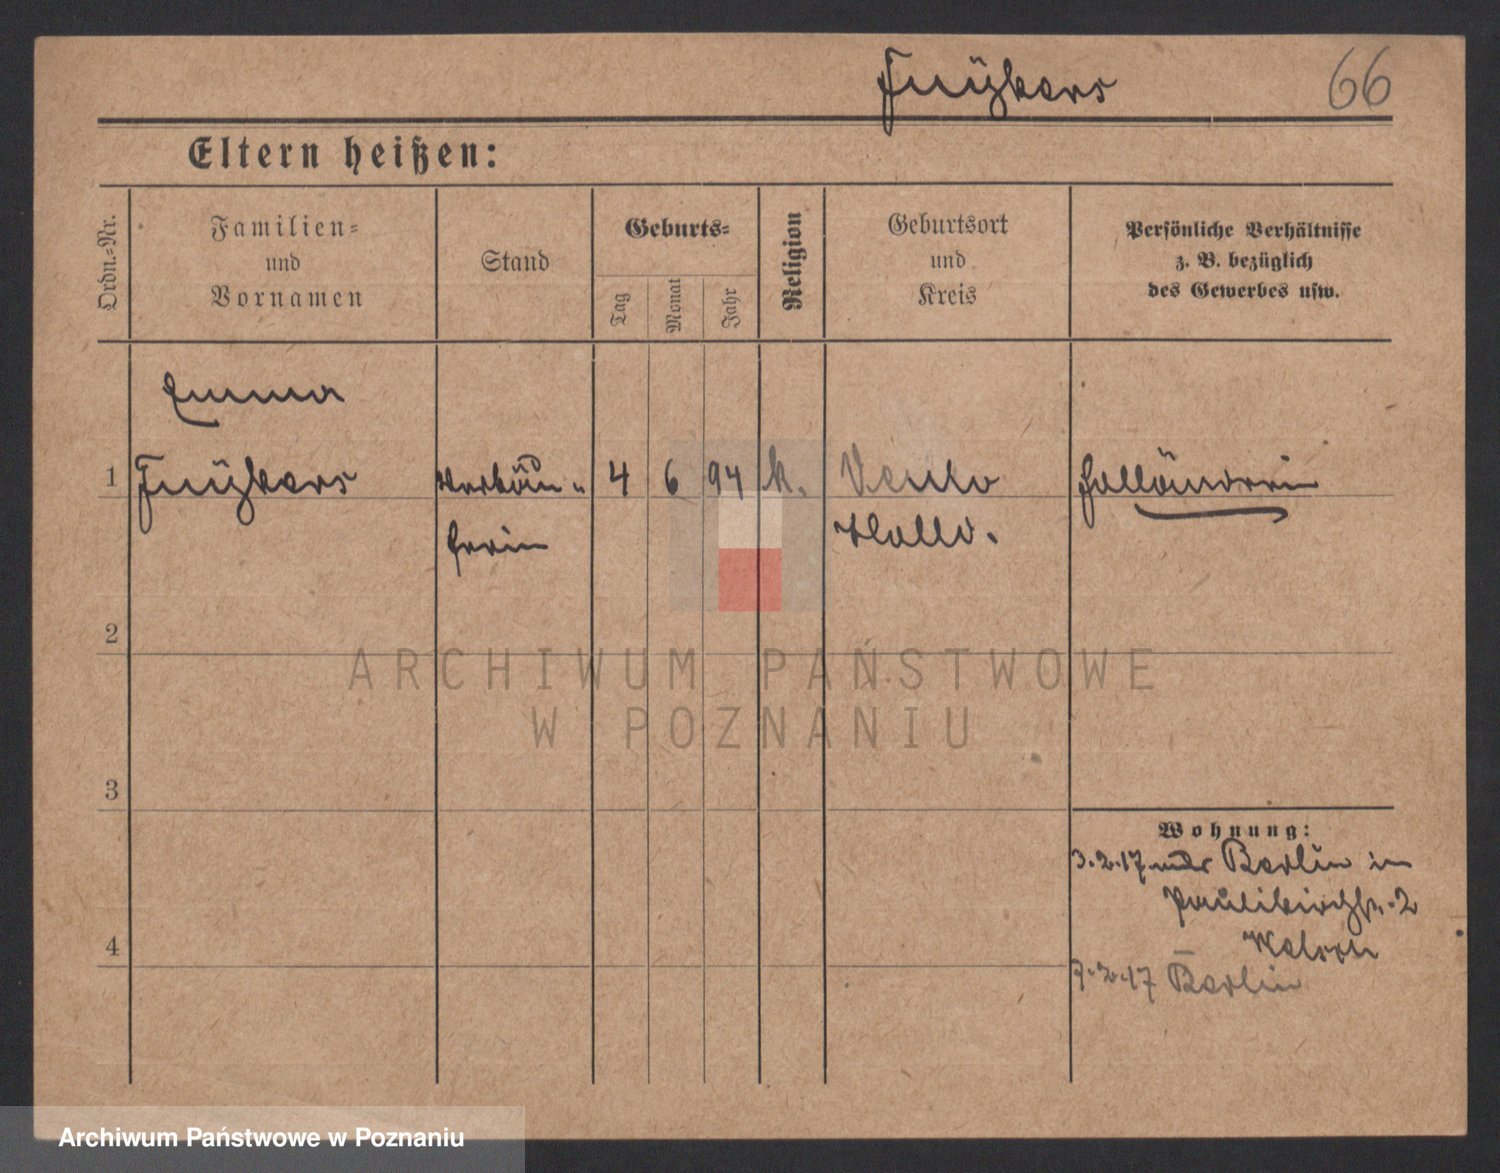 66
Eltern heißen:
Ordn.-Nr.
Familien-
und
Vornamen
Stand
Geburts-
Tag
Monat
Jahr
Religion
Geburtsort
und
Kreis
Persönliche Verhältnisse
z. B. bezüglich
des Gewerbes usw.
Emma
1
4 6 94 k. Venlo Holländerin
Holld.
2
3
4
Wohnung:
3.2.17 Berlin in
Paulikirchstr. 2
7.2.17 Berlin
ARCHIWUM PAŃSTWOWE
W POZNANIU
Archiwum Państwowe w Poznaniu